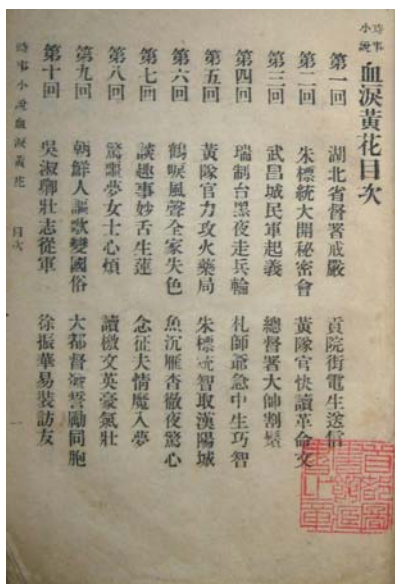 時事小說 血淚黃花目次
第一回 湖北省督署戒嚴 貢院街電生送信
第二回 朱標統大開秘密會 黃隊官快讀革命文
第三回 武昌城民軍起義 總督署大帥割鬚
第四回 瑞制台黑夜走兵輪 札師爺急中生巧智
第五回 黃隊官力攻火藥局 朱標統智取漢陽城
第六回 鶴唳風聲全家失色 魚沉雁杳徹夜驚心
第七回 談趣事妙舌生蓮 念征夫情魔入夢
第八回 驚噩夢女士心煩 讀檄文英豪氣壯
第九回 朝鮮人謳歌變國俗 大都督誓勵同胞
第十回 吳淑卿壯志從軍 徐振華易裝訪友
時事小說血淚黃花 目次 一